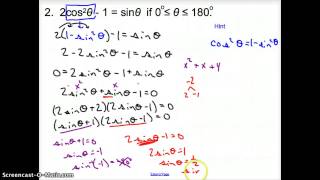 2. 2cos²θ - 1 = sinθ if 0° ≤ θ ≤ 180°
Hint
2(1-sin²θ)-1=sinθ
cos²θ=1-sin²θ
2-2sin²θ-1=sinθ
0=2sin²θ+sinθ-1
-2
2 -1
(2sinθ+2)(2sinθ-1)=0
(sinθ+1)(2sinθ-1)=0
sinθ+1=0
2sinθ-1=0
sinθ=-1
2sinθ=1
sin⁻¹(-1)=
sinθ=1/2
sin
Screencast-O-Matic.com